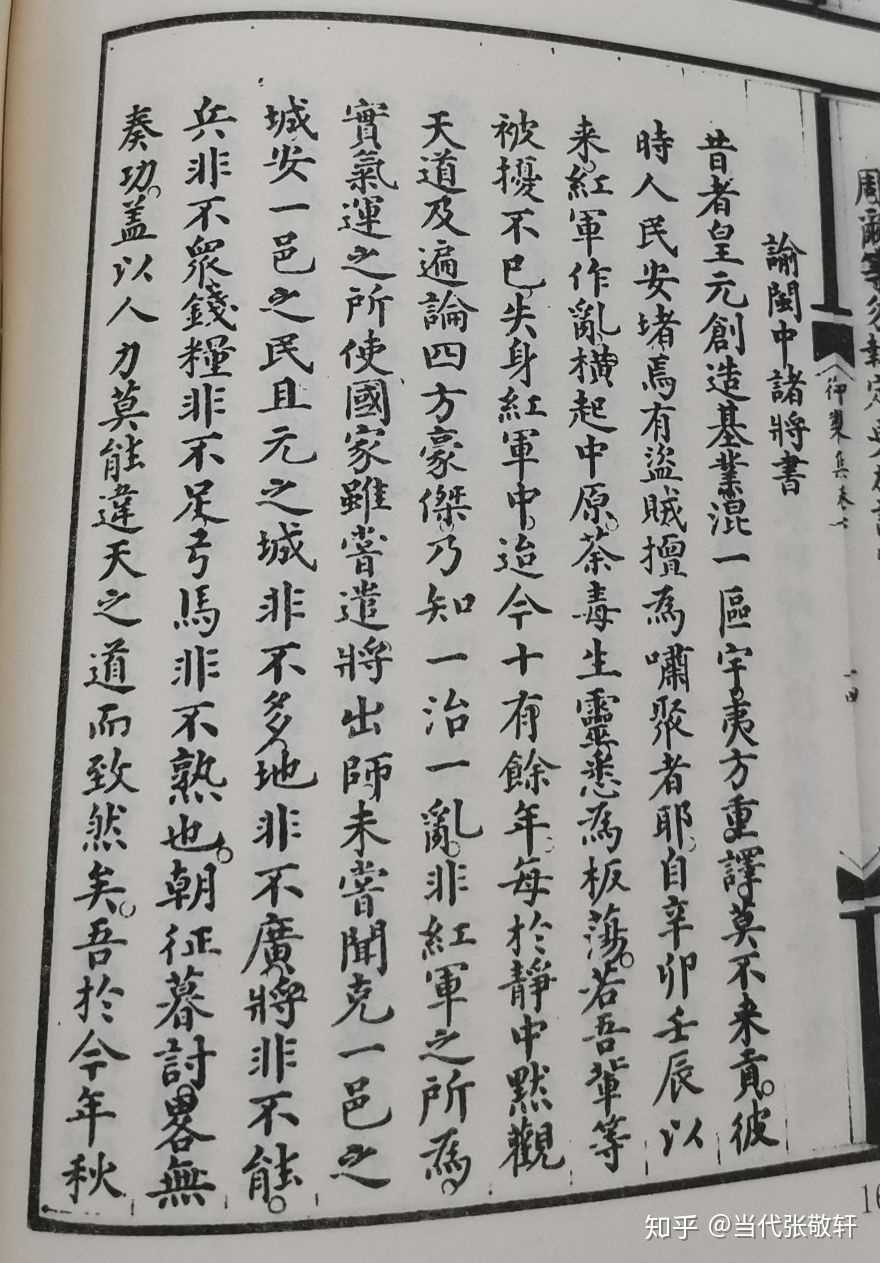 諭閩中諸將書
昔者皇元創造基業混一區宇夷方重譯莫不來貢彼
時人民安堵焉有盜賊擅為嘯聚者耶自辛卯壬辰以
來紅軍作亂橫起中原荼毒生靈悉為板蕩若吾輩等
被擾不已失身紅軍中迨今十有餘年每於靜中默觀
天道及遍論四方豪傑乃知一治一亂非紅軍之所為
實氣運之所使國家雖嘗遣將出師未嘗聞克一邑之
城安一邑之民且元之城非不多地非不廣將非不能
兵非不眾錢糧非不足弓馬非不熟也朝征暮討畧無
奏功蓋以人力莫能違天之道而致然矣吾於今年秋
御製集卷七
十四
16
知乎 @当代张敬轩